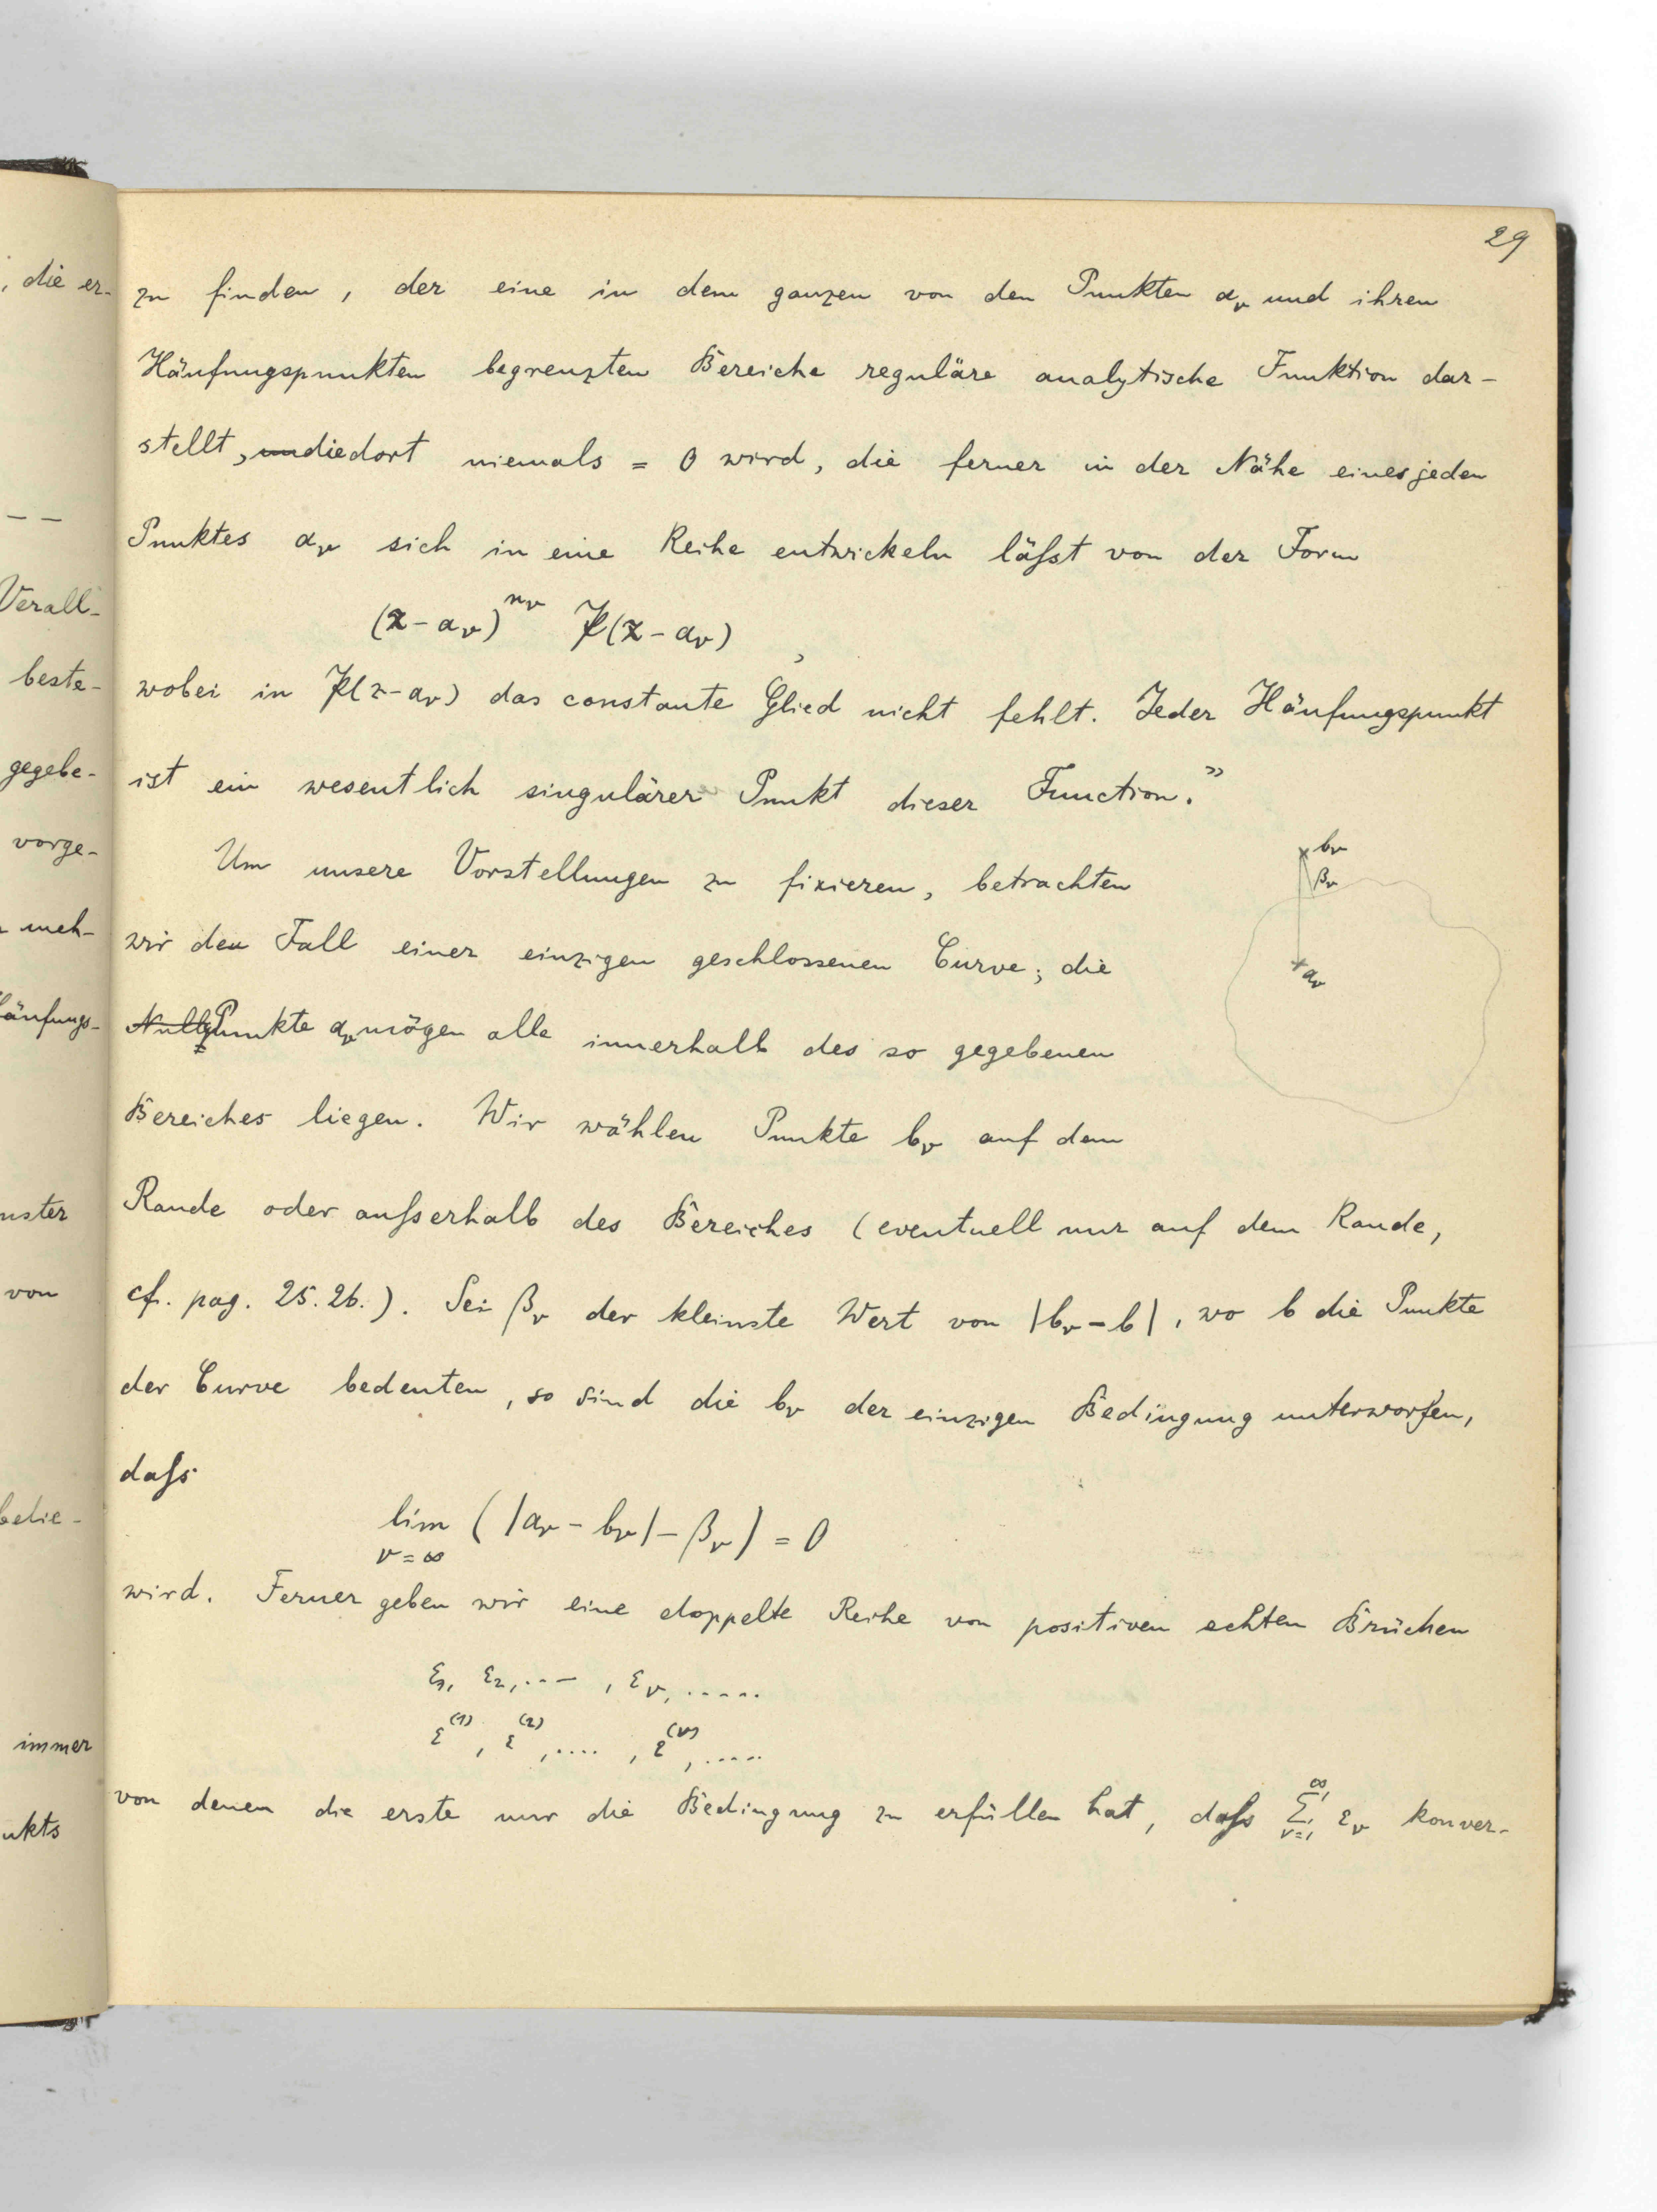 29
zu finden, der eine in dem ganzen von den Punkten aᵥ und ihren
Häufungspunkten begrenzten Bereiche reguläre analytische Funktion dar-
stellt, die dort niemals = 0 wird, die ferner in der Nähe eines jeden
Punktes aᵥ sich in eine Reihe entwickeln läßt von der Form
(x - aᵥ)^nᵥ 𝔓(x - aᵥ),
wobei in 𝔓(x - aᵥ) das constante Glied nicht fehlt. Jeder Häufungspunkt
ist ein wesentlich singulärer Punkt dieser Function."
Um unsere Vorstellungen zu fixieren, betrachten
wir den Fall einer einzigen geschlossenen Curve; die
Punkte aᵥ mögen alle innerhalb des so gegebenen
Bereiches liegen. Wir wählen Punkte bᵥ auf dem
Rande oder außerhalb des Bereiches (eventuell nur auf dem Rande,
cf. pag. 25. 26.). Sei βᵥ der kleinste Wert von |bᵥ - b|, wo b die Punkte
der Curve bedeuten, so sind die bᵥ der einzigen Bedingung unterworfen,
daß
lim (|aᵥ - bᵥ| - βᵥ) = 0
ν = ∞
wird. Ferner geben wir eine doppelte Reihe von positiven echten Brüchen
ε₁, ε₂, ..., εᵥ, .....
ε⁽¹⁾, ε⁽²⁾, ...., ε⁽ᵛ⁾, .....
von denen die erste nur die Bedingung zu erfüllen hat, daß ∞ Σ ν=1 εᵥ konver-
bᵥ
βᵥ
aᵥ
, die er-
Verall-
beste-
gegebe-
vorge-
meh-
äufungs-
nster
von
belie-
immer
nkts